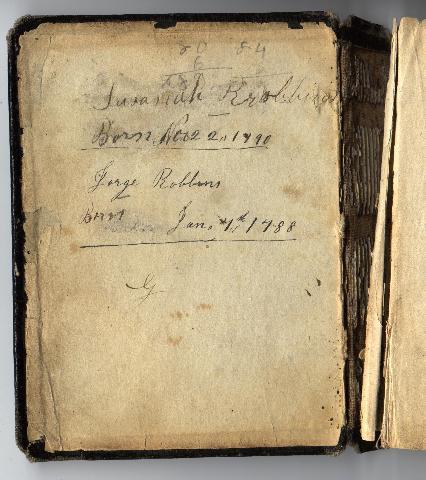 20 84
6
Susanah Krobbins
Born Nov 22, 1790
Jorge Robbins
Born Jan. 4th 1788
G